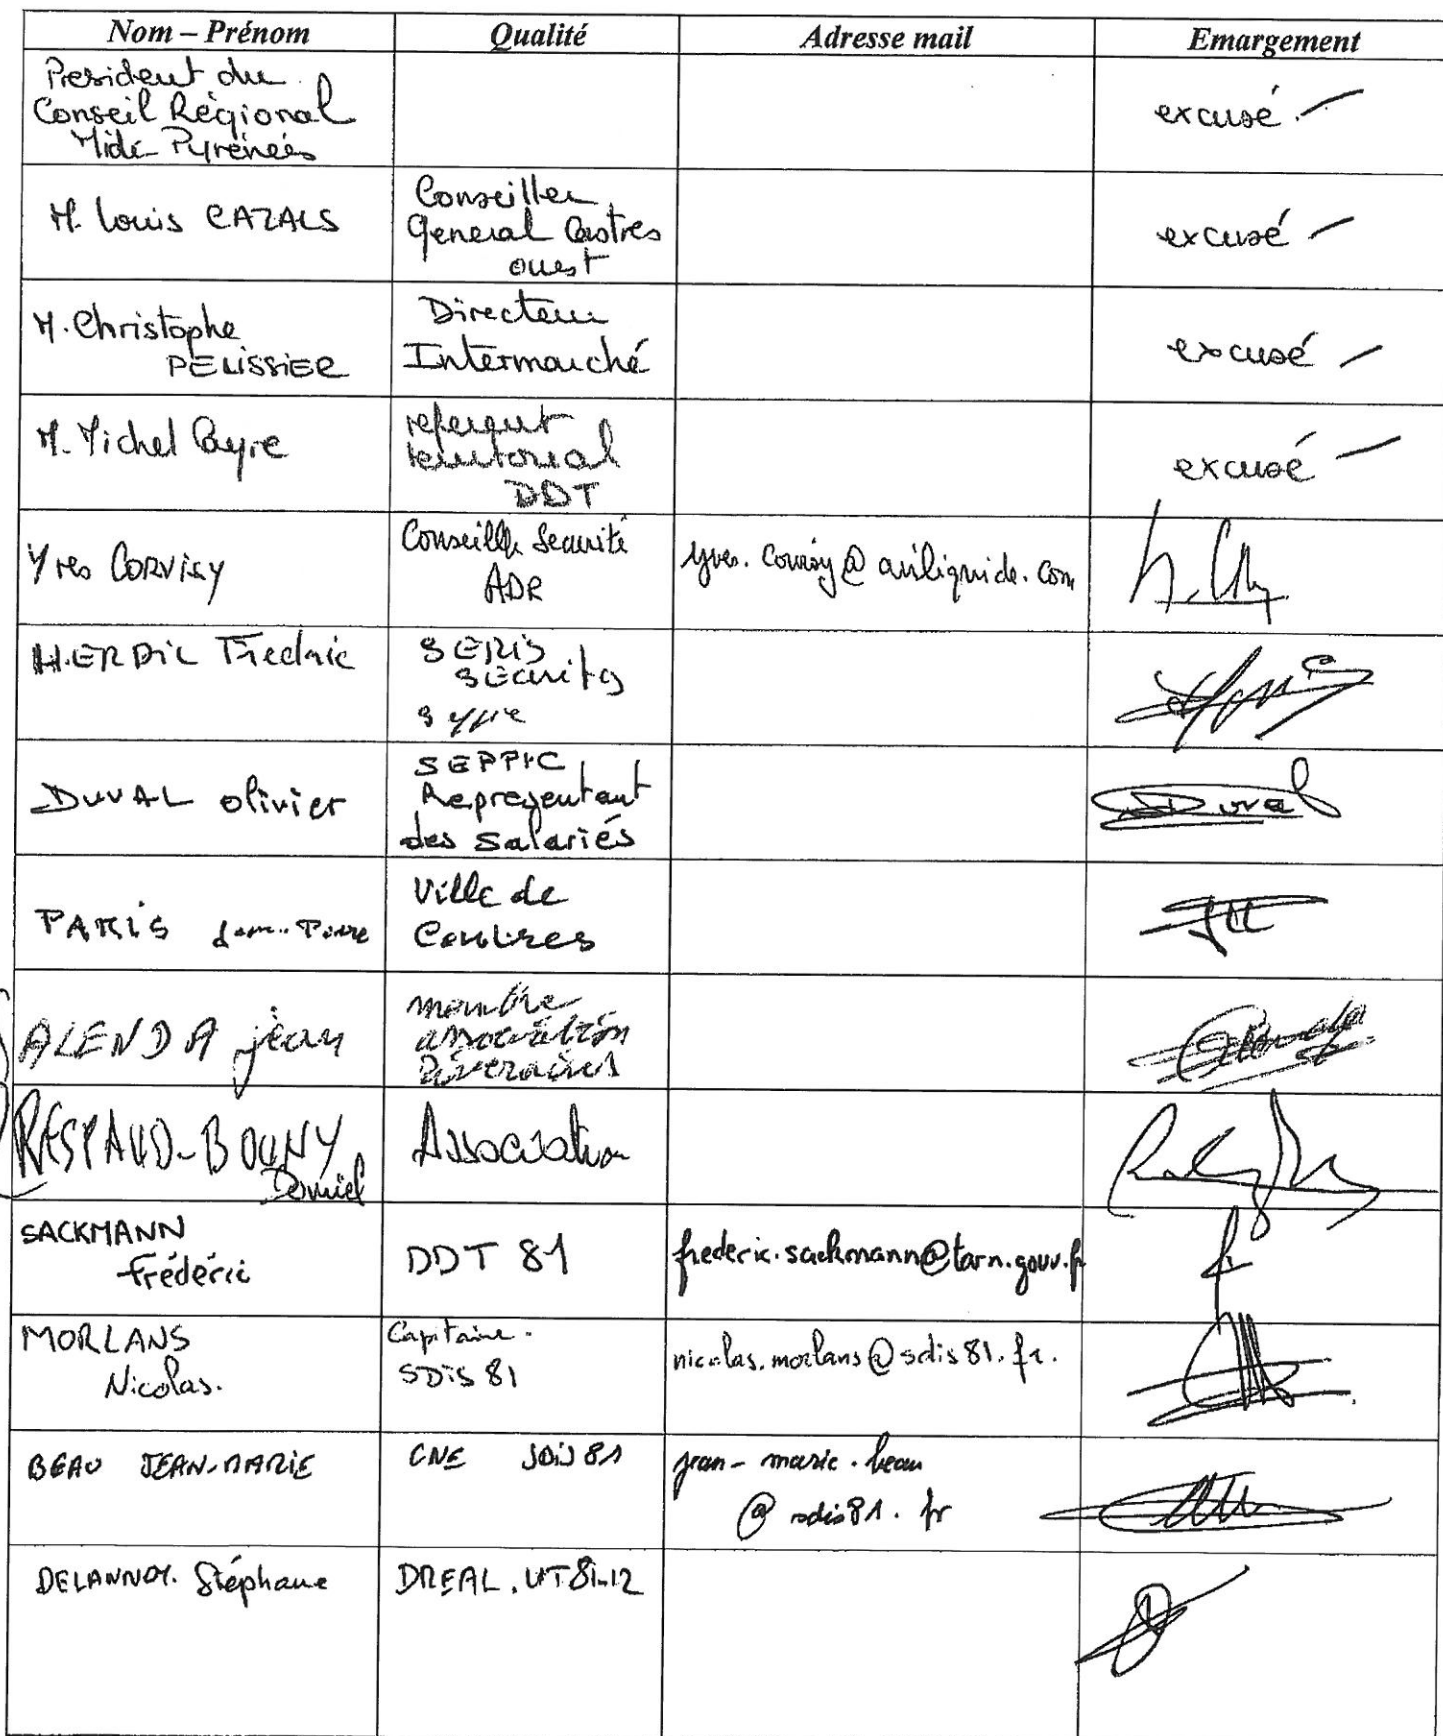 Nom – Prénom Qualité Adresse mail Emargement
President du
Conseil Régional
Midi-Pyrénées
excusé
M. Louis CAZALS
Conseiller
General Castres
ouest
excusé
M. Christophe
PELISSIER
Directeur
Intermarché
excusé
M. Michel Cayre
referent
territorial
DDT
excusé
Yves CORVISY
Conseiller Securité
ADR
yves.corvisy@airliquide.com
HERDIC Frederic
SERIS
Security
DUVAL olivier
SEPPIC
Representant
des Salariés
Duval
PARIS Jean-Pierre
Ville de
Castres
ALENDA jean
membre
association
Riverains
RESPAUD-BOUNY
Daniel
Association
SACKMANN
Frédéric
DDT 81
frederic.sackmann@tarn.gouv.fr
MORLANS
Nicolas.
Capitaine.
SDIS 81
nicolas.morlans@sdis81.fr.
BEAU JEAN-MARIE
CNE SDIS 81
jean-marie.beau
@sdis81.fr
DELANNOY. Stéphane
DREAL.UT81-12